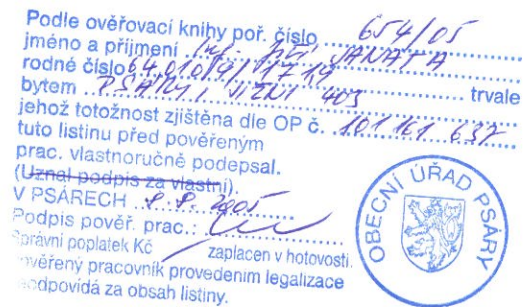 Podle ověřovací knihy poř. číslo 654/05
jméno a příjmení Ing. JANATA
rodné číslo trvale
bytem PSÁRY, JIŽNÍ 403
jehož totožnost zjištěna dle OP č. 101 161 637
tuto listinu před pověřeným
prac. vlastnoručně podepsal.
(Uznal podpis za vlastní).
V PSÁRECH 8.8.2005
Podpis pověř. prac.:
Správní poplatek Kč zaplacen v hotovosti.
ověřený pracovník provedením legalizace
odpovídá za obsah listiny.
OBECNÍ ÚŘAD PSÁRY